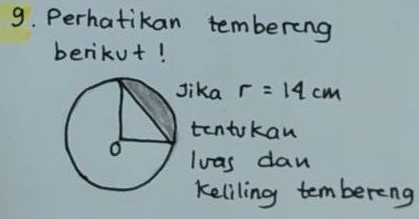 9. Perhatikan tembereng
berikut !
Jika r = 14 cm
tentukan
luas dan
keliling tembereng
O